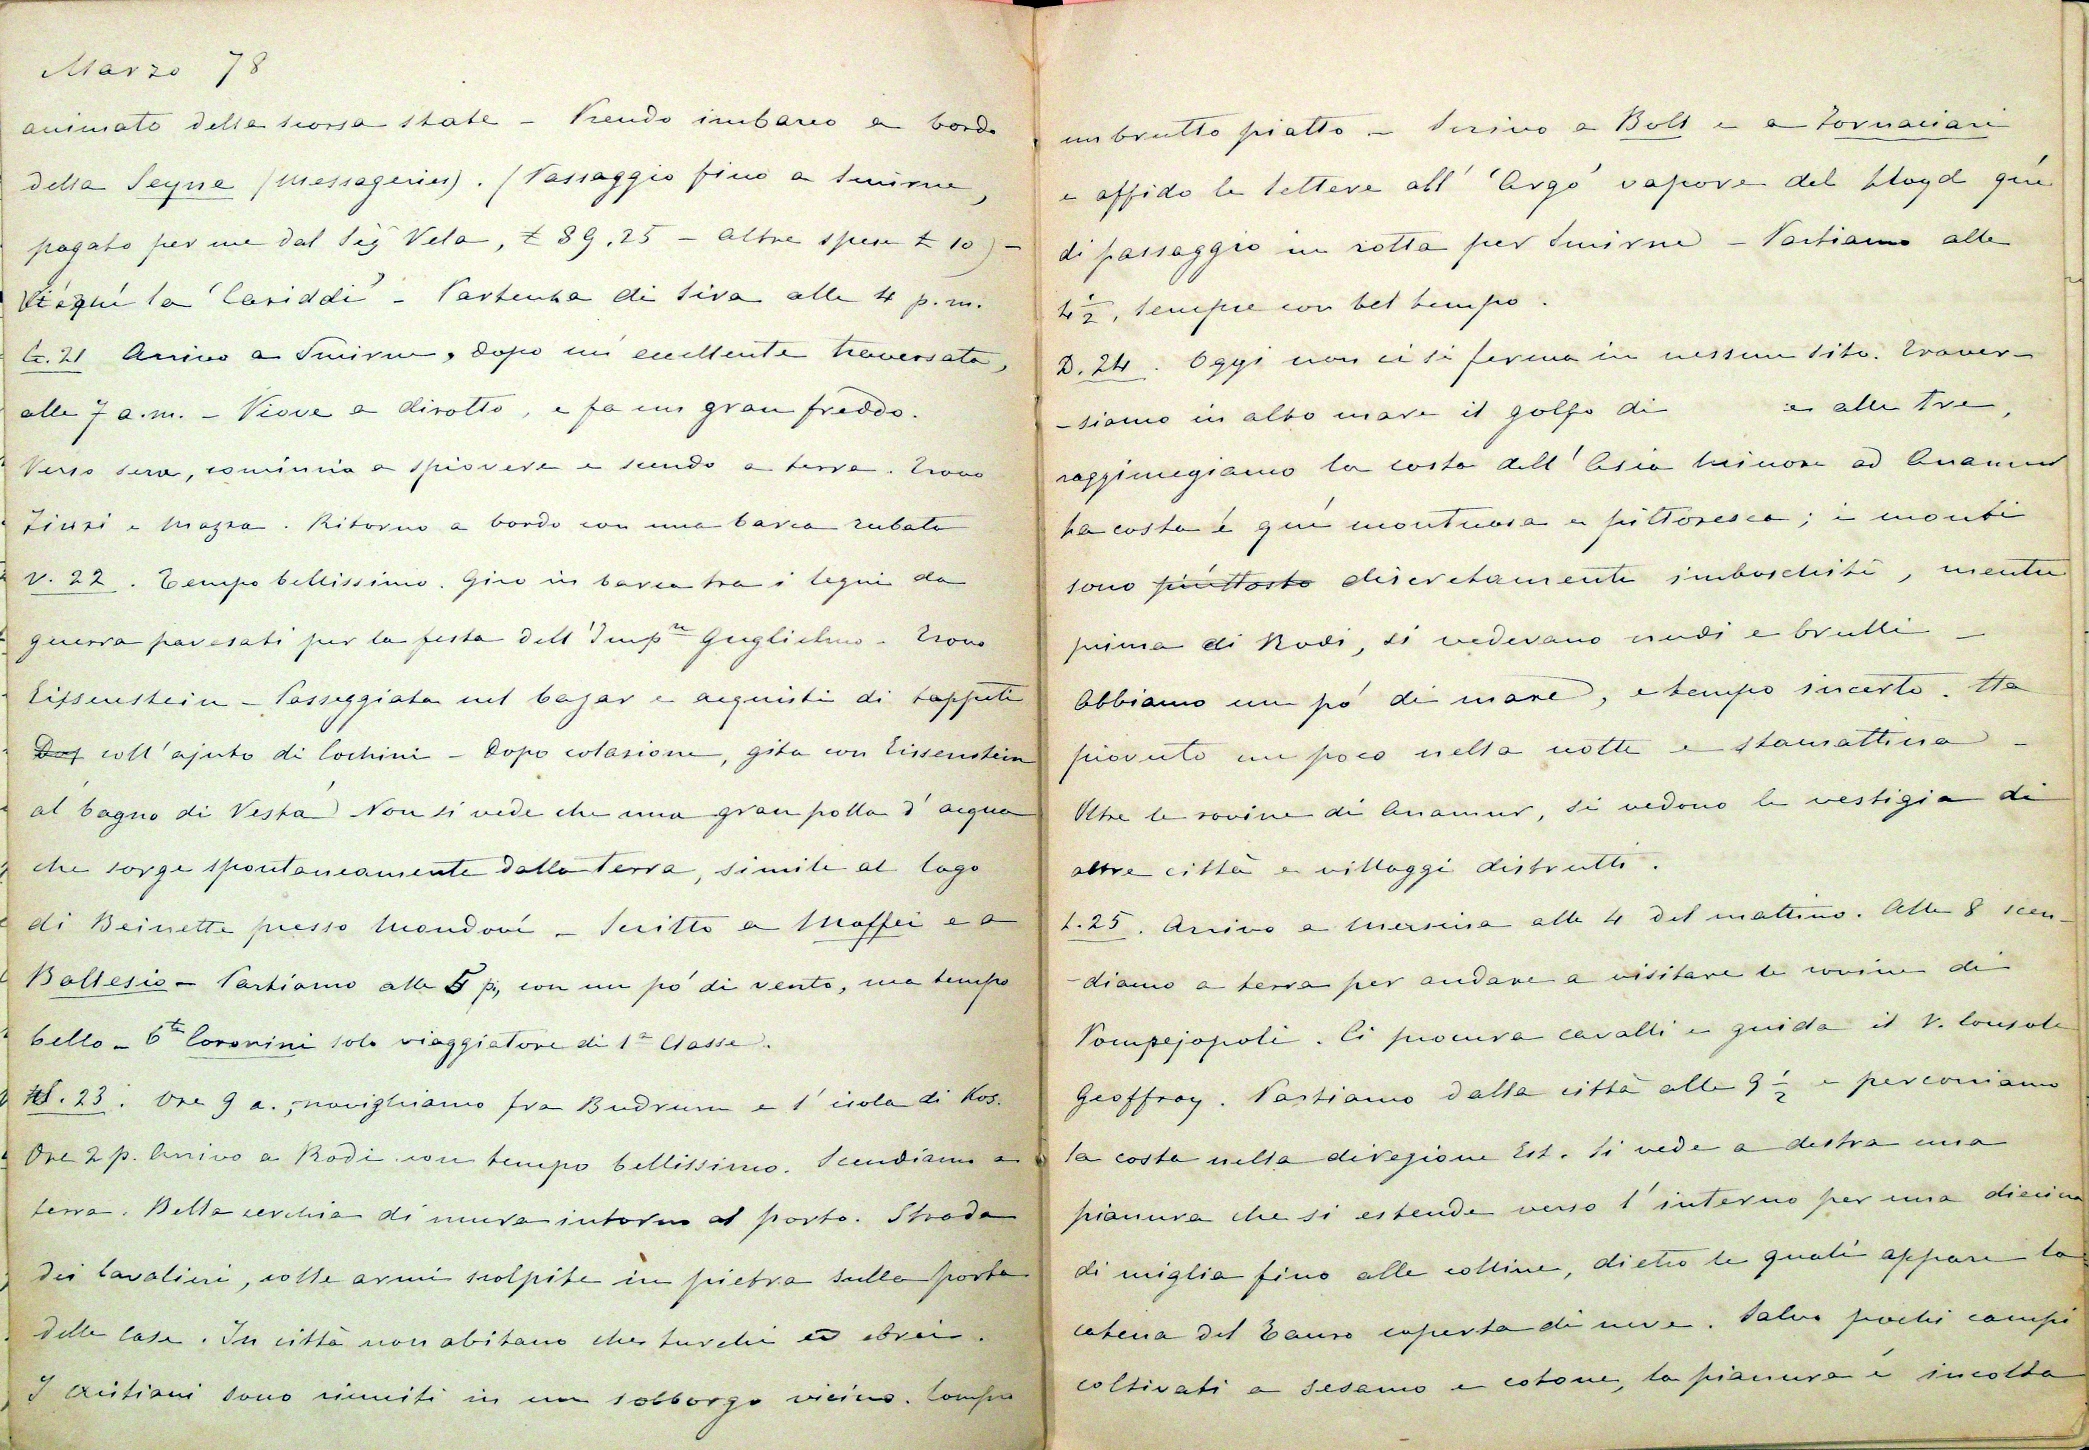 Marzo 78
animato della scorsa state - Prendo imbarco a bordo
della Seyne (Messageries). (Passaggio fino a Smirne,
pagato per me dal Sig Vela, £ 89.25 - altre spese £ 10) -
Vi è quì la 'Cariddi' - Partenza di Sira alle 4 p.m.
G. 21 Arrivo a Smirne, dopo un' eccellente traversata,
alle 7 a.m. - Piove a dirotto, e fa un gran freddo.
Verso sera, comincia a spiovere e scendo a terra. Trovo
e Mazza. Ritorno a bordo con una barca rubata
V. 22. Tempo bellissimo. Giro in barca tra i legni da
guerra pavesati per la festa dell' Imp.re Guglielmo - Trovo
Eissenstein - Passeggiata nel bazar e acquisti di tappeti
coll' ajuto di Cochini - Dopo colazione, gita con Eissenstein
al 'bagno di Vesta' Non si vede che una gran polla d' acqua
che sorge spontaneamente dalla terra, simile al lago
di Beinette presso Mondovì - Scritto a Maffei e a
Ballesio - Partiamo alle 5 p, con un pò di vento, ma tempo
bello - Cte Coronini solo viaggiatore di 1a Classe.
S. 23. Ore 9 a., navighiamo fra Budrum e l' isola di Kos.
Ore 2 p. Arrivo a Rodi con tempo bellissimo. Scendiamo a
terra. Bella cerchia di mura intorno al porto. Strada
dei Cavalieri, colle armi scolpite in pietra sulla porta
delle Case. In città non abitano che turchi ed ebrei.
I cristiani sono riuniti in un sobborgo vicino. Compro
un brutto piatto - Scrivo a Bolt e a Fornaciari
e affido le lettere all' 'Argo' vapore del Lloyd quì
di passaggio in rotta per Smirne - Partiamo alle
4 1/2, sempre con bel tempo.
D. 24. Oggi non ci si ferma in nessun sito. Traver-
-siamo in alto mare il golfo di e alle tre,
raggiungiamo la costa dell' Asia Minore ad Anamur
La costa è quì montuosa e pittoresca; i monti
sono piuttosto discretamente imboschiti, mentre
prima di Rodi, si vedevano nudi e brulli -
Abbiamo un pò di mare, e tempo incerto. Ha
piovuto un poco nella notte e stamattina -
Oltre le rovine di Anamur, si vedono le vestigia di
altre città e villaggi distrutti.
L. 25. Arrivo a Mersina alle 4 del mattino. Alle 8 scen-
-diamo a terra per andare a visitare le rovine di
Pompejopoli. Ci procura cavalli e guida il V. Console
Geoffroy. Partiamo dalla città alle 9 1/2 e percorriamo
la costa nella direzione Est. Si vede a destra una
pianura che si estende verso l' interno per una diecina
di miglia fino alle colline, dietro le quali appare la
catena del Tauro coperta di neve. Salvo pochi campi
coltivati a sesamo e cotone, la pianura è incolta